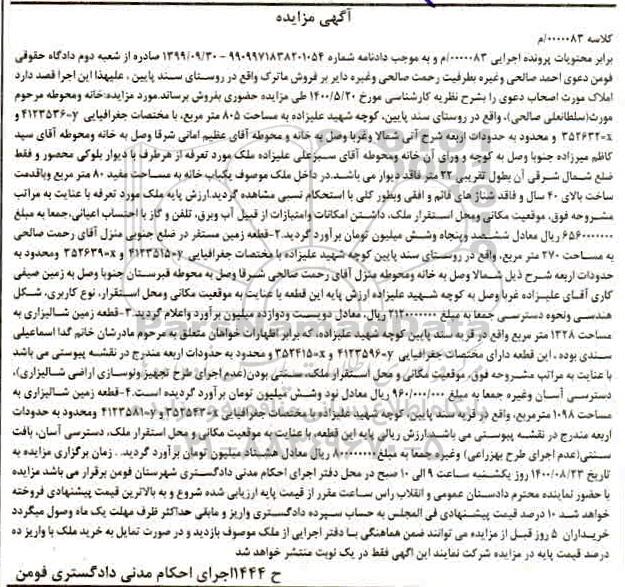 آگهی مزایده
کلاسه ۰۰۰۰۰۸۳/م
برابر محتویات پرونده اجرایی ۰۰۰۰۰۸۳/م و به موجب دادنامه شماره ۹۹۰۹۹۷۱۸۳۸۲۰۱۰۵۴ - ۱۳۹۹/۰۹/۳۰ صادره از شعبه دوم دادگاه حقوقی
فومن دعوی احمد صالحی وغیره بطرفیت رحمت صالحی وغیره دایر بر فروش ماترک واقع در روستای سند پایین ، علیهذا این اجرا قصد دارد
املاک مورث اصحاب دعوی را بشرح نظریه کارشناسی مورخ ۱۴۰۰/۵/۲۰ طی مزایده حضوری بفروش برساند.مورد مزایده:خانه ومحوطه مرحوم
مورث(سلطانعلی صالحی)، واقع در روستای سند پایین، کوچه شهید علیزاده به مساحت ۸۰۵ متر مربع، با مختصات جغرافیایی ۴۱۲۳۵۳۶=y و
x=۳۵۲۶۳۲ و محدود به حدودات اربعه شرح آتی شمالا وغربا وصل به خانه و محوطه آقای عظیم امانی شرقا وصل به خانه ومحوطه آقای سید
کاظم میرزاده جنوبا وصل به کوچه و ورای آن خانه ومحوطه آقای سبزعلی علیزاده ملک مورد تعرفه از هرطرف با دیوار بلوکی محصور و فقط
ضلع شمال شرقی آن بطول تقریبی ۲۲ متر فاقد دیوار می باشد.در داخل ملک موصوف یکباب خانه به مساحت مفید ۸۰ متر مربع وباقدمت
ساخت بالای ۴۰ سال و فاقد شناژهای قائم و افقی وبطور کلی با استحکام نسبی مشاهده گردید.ارزش پایه ملک مورد تعرفه با عنایت به مراتب
مشروحه فوق، موقعیت مکانی ومحل استقرار ملک، داشتن امکانات وامتیازات از قبیل آب وبرق، تلفن و گاز با احتساب اعیانی،جمعا به مبلغ
۶۵۶۰۰۰۰۰۰۰ ریال معادل ششصد وپنجاه وشش میلیون تومان برآورد گردید.۲-قطعه زمین مستقر در ضلع جنوبی منزل آقای رحمت صالحی
به مساحت ۲۷۰ متر مربع، واقع در روستای سند پایین کوچه شهید علیزاده با مختصات جغرافیایی ۴۱۲۳۵۱۵=y و x=۳۵۲۶۳۹ ومحدود به
حدودات اربعه شرح ذیل شمالا وصل به خانه ومحوطه منزل آقای رحمت صالحی شرقا وصل به محوطه قبرستان جنوبا وصل به زمین صیفی
کاری آقای علیزاده غربا وصل به کوچه شهید علیزاده ارزش پایه این قطعه با عنایت به موقعیت مکانی ومحل استقرار، نوع کاربری، شکل
هندسی ونحوه دسترسی جمعا به مبلغ ۲۱۲۰۰۰۰۰۰۰ ریال، معادل دویست ودوازده میلیون برآورد واعلام گردید.۳-قطعه زمین شالیزاری به
مساحت ۱۳۲۸ متر مربع واقع در قریه سند پایین کوچه شهید علیزاده، که برابر اظهارات خواهان متعلق به مرحوم مادرشان خانم گدا اسماعیلی
سندی بوده ، این قطعه دارای مختصات جغرافیایی ۴۱۲۳۵۹۶=y و x=۳۵۲۴۱۵ و محدود به حدودات اربعه مندرج در نقشه پیوستی می باشد
با عنایت به مراتب مشروحه فوق، موقعیت مکانی و محل استقرار ملک، سنتی بودن(عدم اجرای طرح تجهیز ونوسازی اراضی شالیزاری)،
دسترسی آسان وغیره جمعا به مبلغ ۹۶۰/۰۰۰/۰۰۰ ریال معادل نود وشش میلیون تومان برآورد گردیده است.۴-قطعه زمین شالیزاری به
مساحت ۱۰۹۸ مترمربع، واقع در قریه سند پایین، کوچه شهید علیزاده با مختصات جغرافیایی x=۳۵۲۵۴۳ و y=۴۱۲۳۵۸۱ ومحدود به حدودات
اربعه مندرج در نقشه پیوستی می باشد.ارزش ریالی پایه این قطعه، با عنایت به موقعیت مکانی و محل استقرار ملک، دسترسی آسان، بافت
سنتی(عدم اجرای طرح بهزراعی) وغیره جمعا به مبلغ ۸۰۰۰۰۰۰۰۰ ریال معادل هشتاد میلیون تومان برآورد گردید. . زمان برگزاری مزایده به
تاریخ ۱۴۰۰/۰۸/۲۳ روز یکشنبه ساعت ۹ الی ۱۰ صبح در محل دفتر اجرای احکام مدنی دادگستری شهرستان فومن برقرار می باشد مزایده
با حضور نماینده محترم دادستان عمومی و انقلاب راس ساعت مقرر از قیمت پایه ارزیابی شده شروع و به بالاترین قیمت پیشنهادی فروخته
خواهد شد ۱۰ درصد قیمت پیشنهادی فی المجلس به حساب سپرده دادگستری واریز و مابقی حداکثر ظرف مهلت یک ماه وصول میگردد
خریداران ۵ روز قبل از مزایده می توانند ضمن هماهنگی با دفتر اجرایی از ملک موصوف بازدید و در صورت تمایل به خرید ملک با واریز ده
درصد قیمت پایه در مزایده شرکت نمایند این آگهی فقط در یک نوبت منتشر خواهد شد
ح ۱۴۴۴اجرای احکام مدنی دادگستری فومن